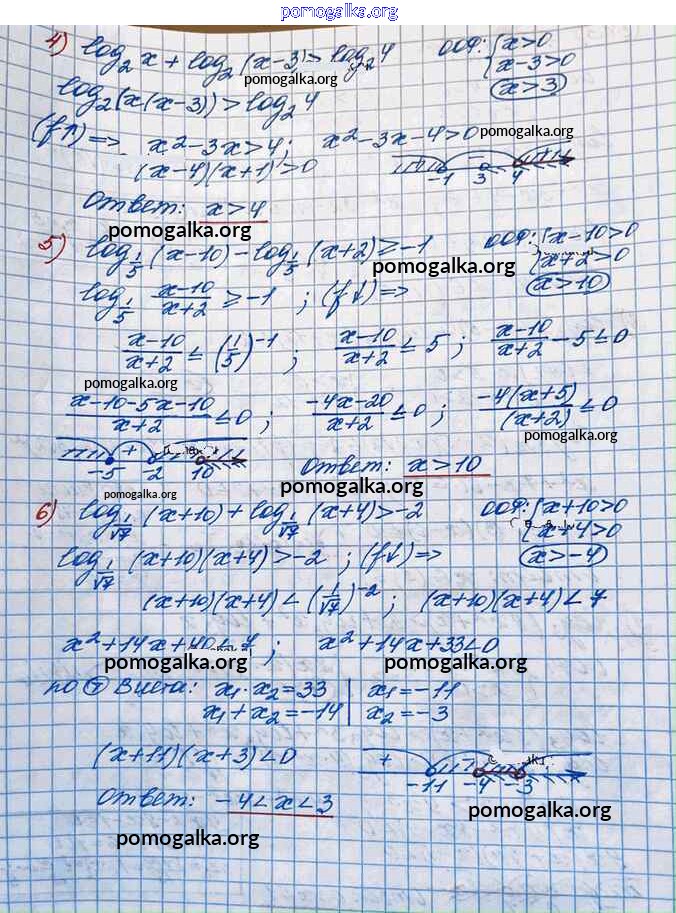 pomogalka.org
4) log₂ x + log₂ (x-3) > log₂ 4   ООФ: { x>0
x-3>0
pomogalka.org
x>3
log₂(x(x-3)) > log₂ 4
(f↑) => x²-3x>4; x²-3x-4>0 pomogalka.org
(x-4)(x+1)>0   + -1 3 4 +
Ответ: x>4
pomogalka.org
5) log_{1/5} (x-10) - log_{1/5} (x+2) ≥ -1   ООФ: { x-10>0
x+2>0
pomogalka.org
x>10
log_{1/5} (x-10)/(x+2) ≥ -1 ; (f↓) =>
(x-10)/(x+2) ≤ (1/5)^{-1} ; (x-10)/(x+2) ≤ 5 ; (x-10)/(x+2) - 5 ≤ 0
pomogalka.org
(x-10-5x-10)/(x+2) ≤ 0 ; (-4x-20)/(x+2) ≤ 0 ; (-4(x+5))/(x+2) ≤ 0
pomogalka.org
+ -5 -2 10   Ответ: x>10
pomogalka.org
pomogalka.org
6) log_{1/√7} (x+10) + log_{1/√7} (x+4) > -2   ООФ: { x+10>0
x+4>0
x>-4
log_{1/√7} (x+10)(x+4) > -2 ; (f↓) =>
(x+10)(x+4) < (1/√7)^{-2} ; (x+10)(x+4) < 7
x²+14x+40<7 ; x²+14x+33<0
pomogalka.org pomogalka.org
по Т Виета: x₁·x₂=33 | x₁=-11
x₁+x₂=-14 | x₂=-3
(x+11)(x+3)<0   + -11 -4 -3
Ответ: -4<x<3
pomogalka.org
pomogalka.org